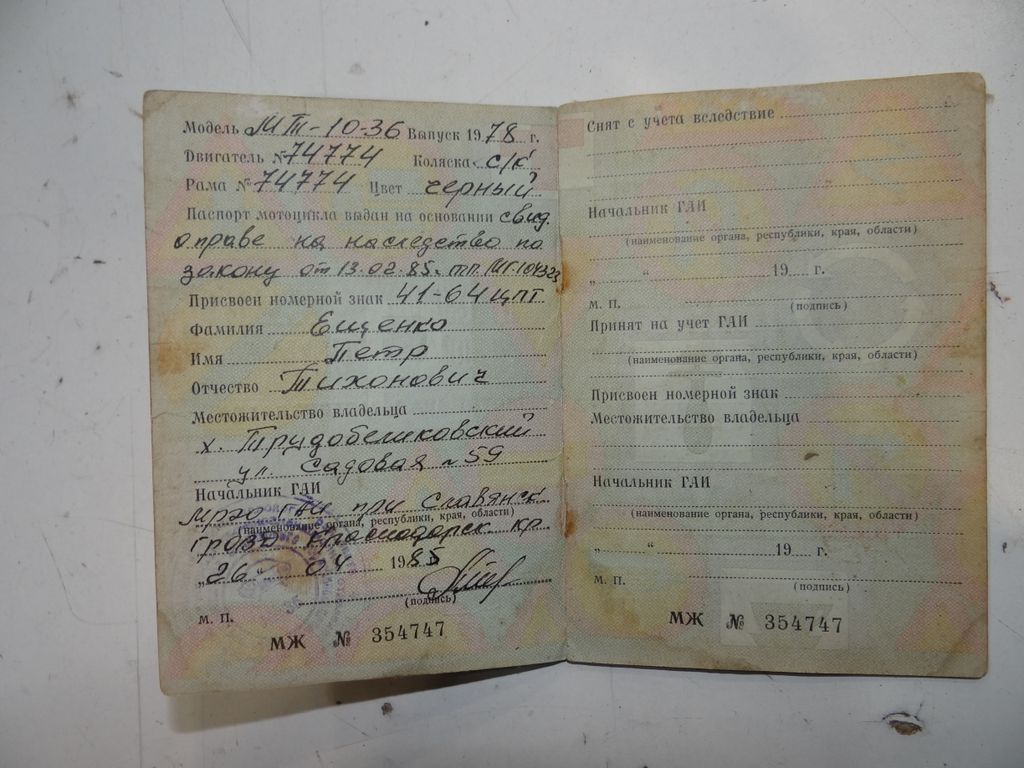 Модель МТ-10-36 Выпуск 1978 г.
Двигатель №74774 Коляска с/к
Рама №74774 Цвет черный
Паспорт мотоцикла выдан на основании свид.
о праве на наследство по
закону от 13.02.85.
Присвоен номерной знак 41-64 ЦПТ
Фамилия Ещенко
Имя Петр
Отчество Тихонович
Местожительство владельца
х. Трудобеликовский
ул. Садовая №59
Начальник ГАИ
МРЭО ГАИ при Славянск.
(наименование органа, республики, края, области)
ГРОВД Краснодарск кр.
„26“ 04 1985
(подпись)
м. п.
МЖ № 354747
Снят с учета вследствие
Начальник ГАИ
(наименование органа, республики, края, области)
„ “ 19 г.
м. п. (подпись)
Принят на учет ГАИ
(наименование органа, республики, края, области)
Присвоен номерной знак
Местожительство владельца
Начальник ГАИ
(наименование органа, республики, края, области)
„ “ 19 г.
м. п.
(подпись)
МЖ № 354747